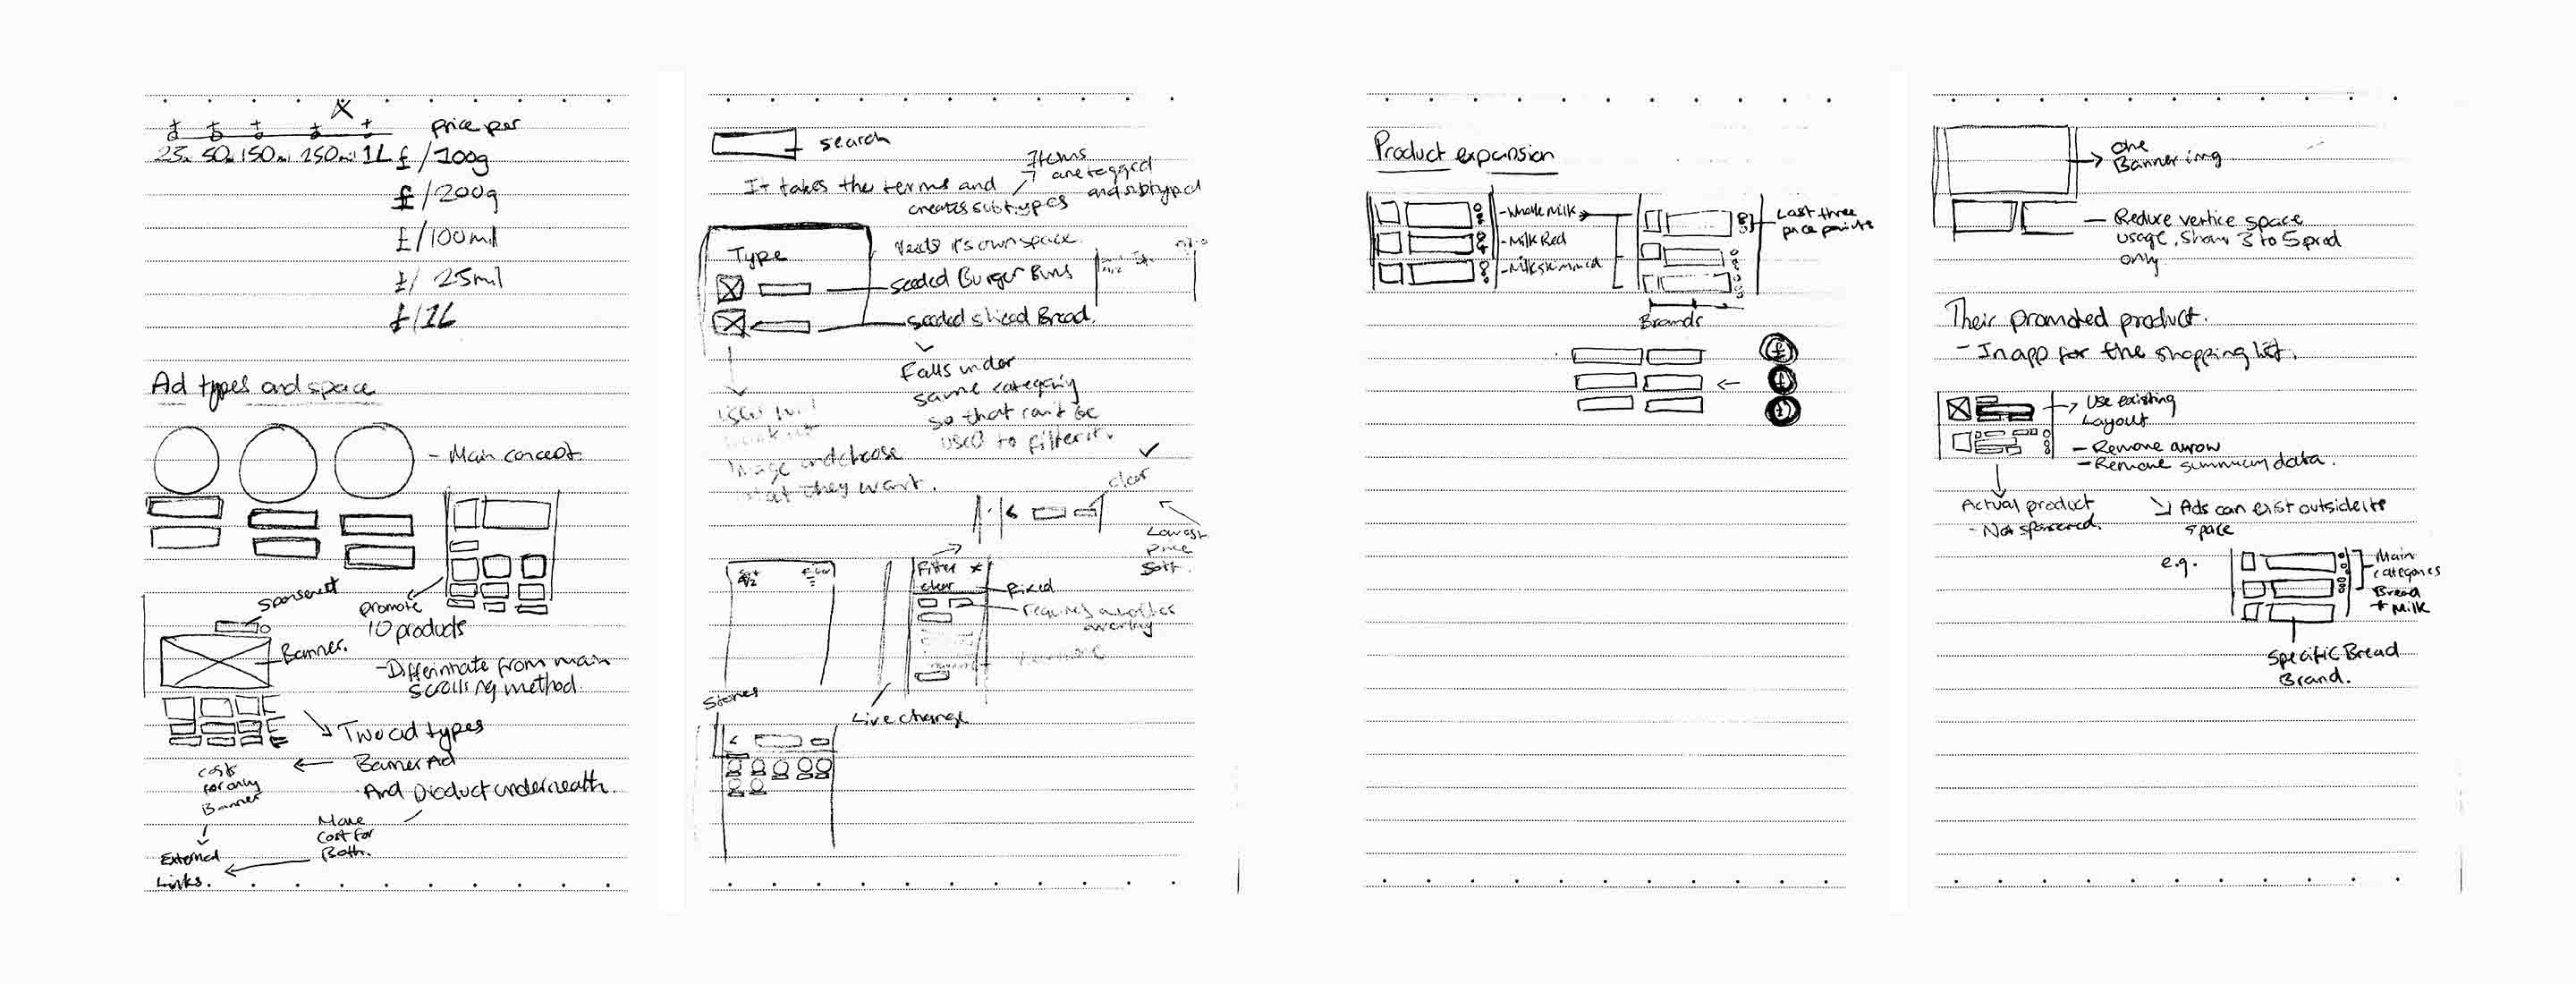 price per
25 50 150ml 250ml 1L £/100g
£/200g
£/100ml
£/25mil
£/1L
Ad types and space
- Main concept.
Sponsered
promote
10 products
Banner.
- Differintate from main
scrolling method.
Two ad types
Banner Ad
And product underneath.
cost
for only
Banner
More
cost for
Both.
External
Links.
search
It takes the terms and
creates subtypes
Items
are tagged
and subtyped
Type
Needs it's own space.
seeded Burger Buns
seeded sliced Bread.
Falls under
same category
so that can't be
used to filter it.
User will
Image and choose
what they want.
clear
Lowest
price
sort.
Filter x
clear
Fixed
Live change
Stores
Product expansion
- Whole Milk
- Milk Red
- Milk skimmed
Last three
price points
Brands
£
£
£
One
Banner img
- Reduce vertice space
usage, show 3 to 5 prod
only
Their promoted product.
- In app for the shopping list.
Use existing
Layout
- Remove arrow
- Remove summum data.
Actual product
- Not sponsered.
Ads can exist outside its
space
e.g.
Main
categories
Bread
+ Milk
Specific Bread
Brand.